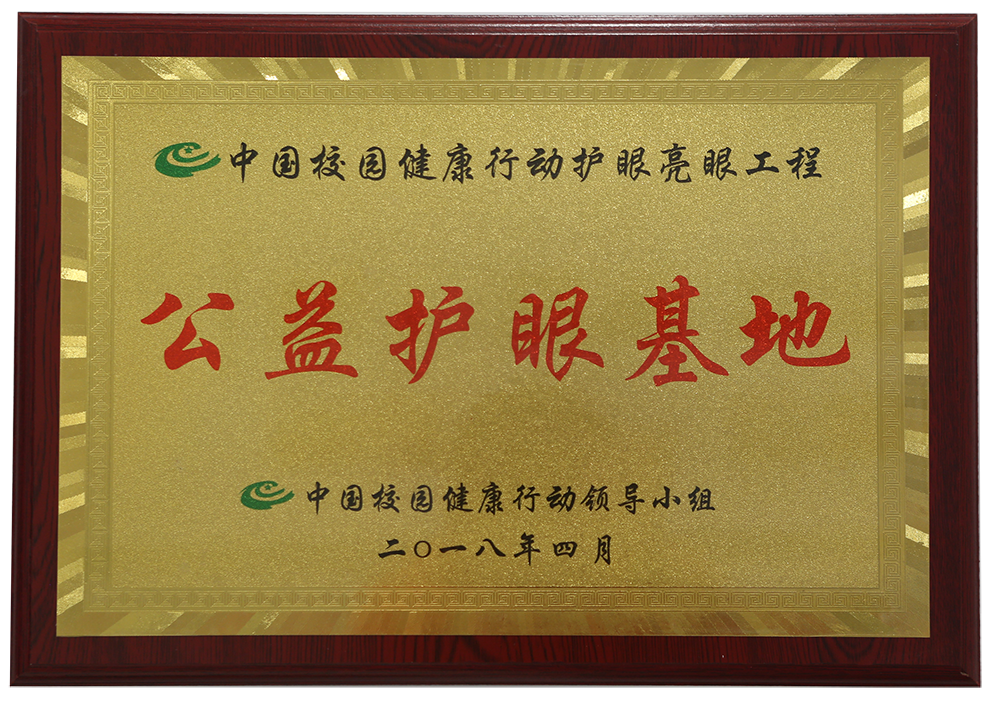 中国校园健康行动护眼亮眼工程
公益护眼基地
中国校园健康行动领导小组
二〇一八年四月